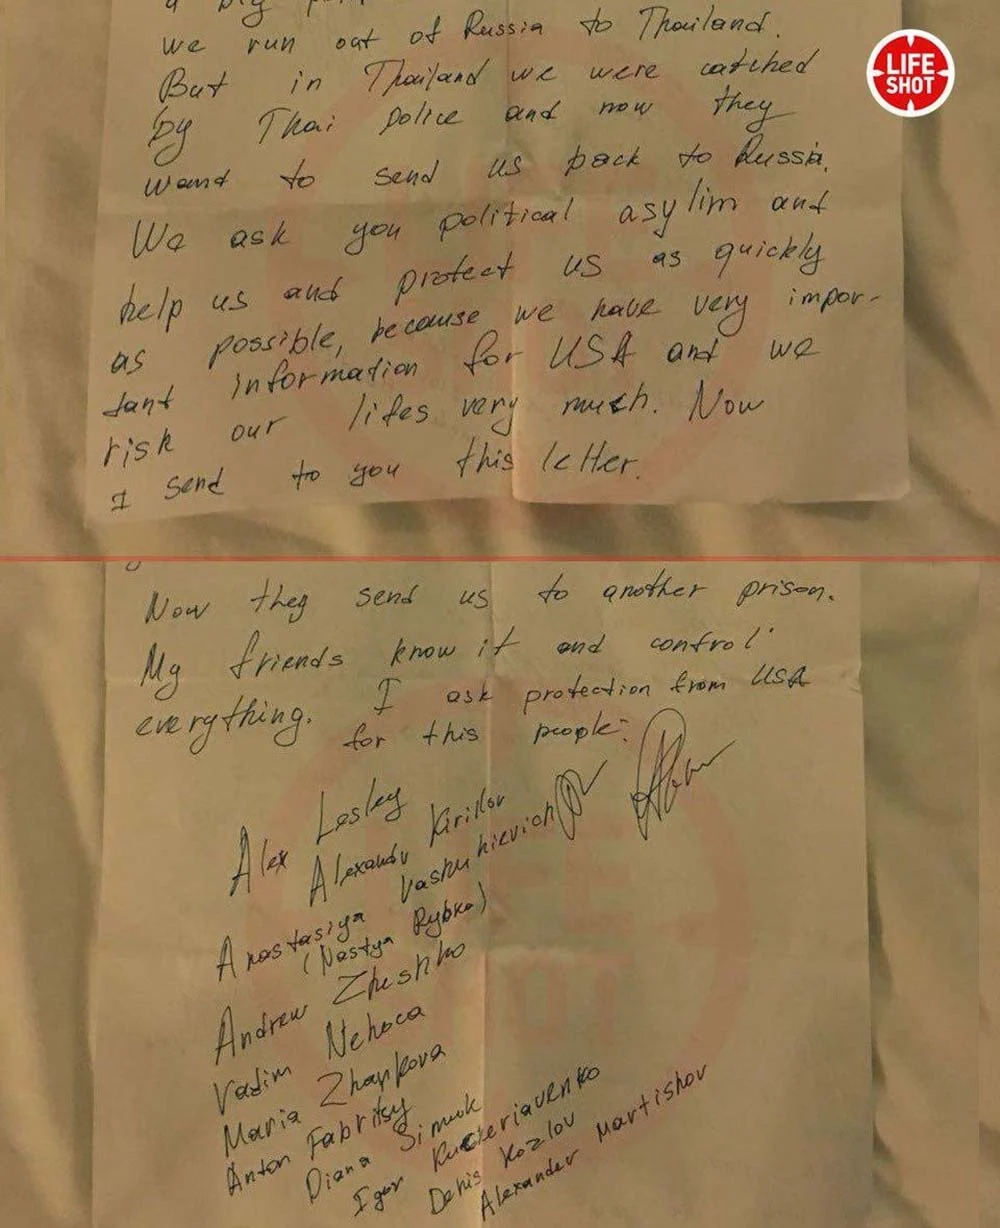 a big
we run out of Russia to Thailand.
But in Thailand we were catched
by Thai police and now they
wand to send us back to Russia.
We ask you political asylim and
help us and protect us as quickly
as possible, because we have very impor-
tant information for USA and we
risk our lifes very much. Now
I send to you this letter.
LIFE
SHOT
Now they send us to another prison.
My friends know it and control
everything. I ask protection from USA
for this people:
Alex Lesley
Alexandr Kirillov
Anastasiya Vashukievich
(Nastya Rybka)
Andrew
Vadim
Maria Zharkova
Anton Fabritsy
Diana Simuk
Igor
Denis Kozlov
Alexander Martishov